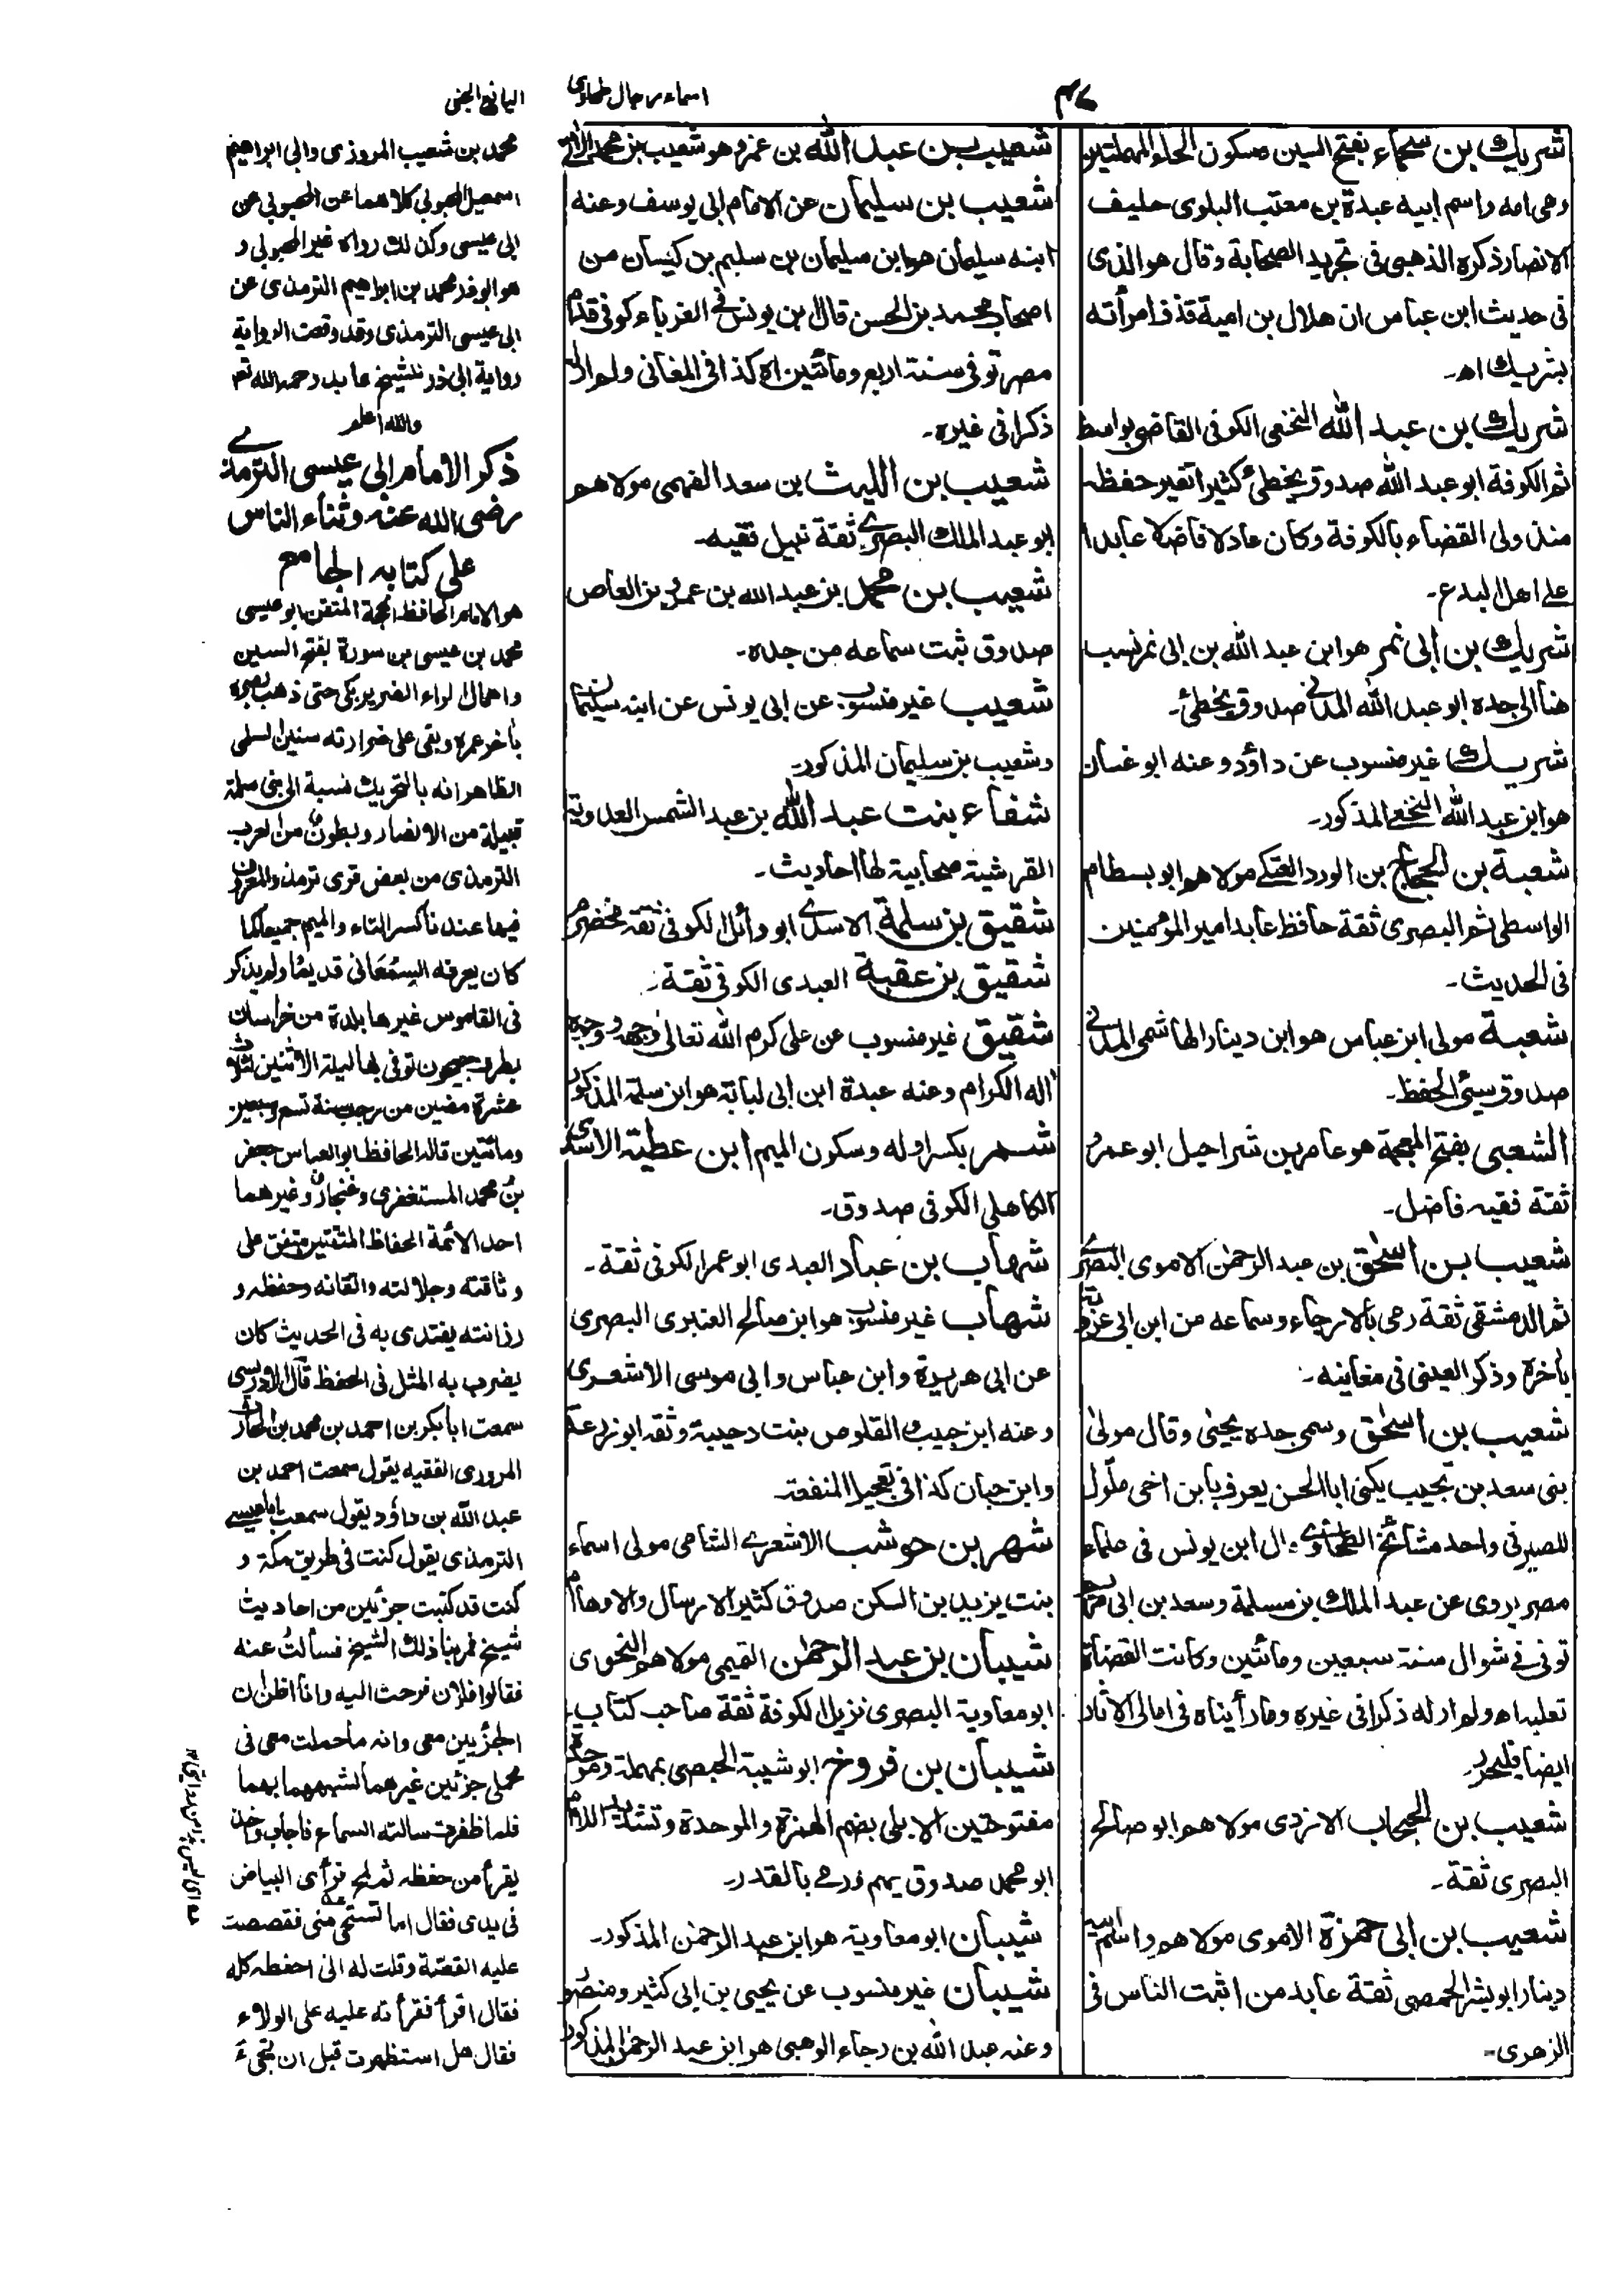 ٤٧
اسماء رجال طحاوی
اليانع الجنی
شريك بن سحماء بفتح السين وسكون الحاء المهملتين
وهی امه واسم ابيه عبدة بن معتب البلوی حليف
الانصار ذكره الذهبی فی تجريد الصحابة وقال هو الذی
فی حديث ابن عباس ان هلال بن امية قذف امرأته
بشريك اه۔
شريك بن عبد الله النخعی الكوفی القاضی بواسط
ثم الكوفة ابو عبد الله صدوق يخطئ كثيرا تغير حفظه
منذ ولی القضاء بالكوفة وكان عادلا فاضلا عابدا
علی اهل البدع۔
شريك بن ابی نمر هو ابن عبد الله بن ابی نمر نسب
هنا الی جده ابو عبد الله المدنی صدوق يخطئ۔
شريك غير منسوب عن داؤد وعنه ابو غسان
هو ابن عبد الله النخعی المذكور۔
شعبة بن الحجاج بن الورد العتكی مولاهم ابو بسطام
الواسطی ثم البصری ثقة حافظ عابد امير المؤمنين
فی الحديث۔
شعبة مولی ابن عباس هو ابن دينار الهاشمی المدنی
صدوق سیئ الحفظ۔
الشعبی بفتح المعجمة هو عامر بن شراحيل ابو عمرو
ثقة فقيه فاضل۔
شعيب بن اسحٰق بن عبد الرحمٰن الاموی البصری
ثم الدمشقی ثقة رمی بالارجاء وسماعه من ابن ابی عروبة
بأخرة وذكر العينی فی مغانيه۔
شعيب بن اسحٰق وسمی جده يحيٰی وقال مولیٰ
بنی سعد بن تجيب يكنی ابا الحسن يعرف بابن اخی ملّول
للصيرفی واحد مشائخ الطحاوی قال ابن يونس فی علماء
مصر يروی عن عبد الملك بن مسلمة وسعد بن ابی مريم
توفی فی شوال سنة سبعين ومائتين وكانت القضاة
تعلبه اه ولم ار له ذكرا فی غيره وما رأيناه فی امالی الاثار
ايضا فليحرر۔
شعيب بن الحبحاب الازدی مولاهم ابو صالح
البصری ثقة۔
شعيب بن ابی حمزة الاموی مولاهم واسم ابيه
دينار ابو بشر الحمصی ثقة عابد من اثبت الناس فی
الزهری۔
شعيب بن عبد الله بن عمرو هو شعيب بن محمد الآتی
شعيب بن سليمان عن الامام ابی يوسف وعنه
ابنه سليمان هو ابن سليمان بن سليم بن كيسان من
اصحاب محمد بن الحسن قال ابن يونس فی الغرباء كوفی قدم
مصر توفی سنة اربع ومائتين اه كذا فی المغانی ولم ار له
ذكرا فی غيره۔
شعيب بن الليث بن سعد الفهمی مولاهم
ابو عبد الملك البصری ثقة نبيل فقيه۔
شعيب بن محمد بن عبد الله بن عمرو بن العاص
صدوق ثبت سماعه من جده۔
شعيب غير منسوب عن ابی يونس عن ابنه سليمان
وشعيب بن سليمان المذكور۔
شفاء بنت عبد الله بن عبد الشمس العدوية
القرشية صحابية لها احاديث۔
شقيق بن سلمة الاسدی ابو وائل الكوفی ثقة مخضرم
شقيق بن عقبة العبدی الكوفی ثقة۔
شقيق غير منسوب عن علی كرم الله تعالی وجهه ووجوه
اله الكرام وعنه عبدة ابن ابی لبابة هو ابن سلمة المذكور
شمر بكسر اوله وسكون الميم ابن عطية الاسدی
الكاهلی الكوفی صدوق۔
شهاب بن عباد العبدی ابو عمر الكوفی ثقة۔
شهاب غير منسوب هو ابن صالح العنبری البصری
عن ابی هريرة وابن عباس وابی موسی الاشعری
وعنه ابن حبيب القلوص بنت دحيبة وثقه ابو زرعة
وابن حبان كذا فی تعجيل المنفعة
شهر بن حوشب الاشعری الشامی مولی اسماء
بنت يزيد بن السكن صدوق كثير الارسال والاوهام
شيبان بن عبد الرحمٰن التميمی مولاهم النحوی
ابو معاوية البصری نزيل الكوفة ثقة صاحب كتاب۔
شيبان بن فروخ ابو شيبة الحبطی بمهملة وموحدة
مفتوحتين الابلی بضم الهمزة والموحدة وتشديد اللام
ابو محمد صدوق يهم ورمی بالقدر۔
شيبان ابو معاوية هو ابن عبد الرحمٰن المذكور۔
شيبان غير منسوب عن يحيی بن ابی كثير ومنصور
وعنه عبد الله بن رجاء الوهبی هو ابن عبد الرحمٰن المذكور
محمد بن شعيب المروزی وابی ابراهيم
اسمعيل الصبولی كلاهما عن الصبولی عن
ابی عيسی وكذلك رواه غير الصبولی و
هو ابو ذر محمد بن ابراهيم الترمذی عن
ابی عيسی الترمذی وقد وقعت الرواية
رواية ابی ذر للشيخ عابد رحمه الله تعم
والله اعلم
ذكر الامام ابی عيسی الترمذی
رضی الله عنه وثناء الناس
علی كتابه الجامع
هو الامام الحافظ الحجة المتقن ابو عيسی
محمد بن عيسی بن سورة بفتح السين
واهمال الراء الضرير بكی حتی ذهب بصره
بأخر عمره وبقی علی ضرارته سنين السلمی
الظاهر انه بالتحريك نسبة الی بنی سلمة
قبيلة من الانصار وبطون من العرب
الترمذی من بعض قری ترمذ والمعروف
فيها عندنا كسر التاء والميم جميعا كما
كان يعرفه السمعانی قديما ولم يذكر
فی القاموس غيرها بلدة من خراسان
بطرف جيحون توفی بها ليلة الاثنين لثلاث
عشرة مضين من رجب سنة تسع وسبعين
ومائتين قاله الحافظ ابو العباس جعفر
بن محمد المستغفری وغنجار وغيرهما
احد الائمة الحفاظ المتقنين متفق علی
وثاقته وجلالته واتقانه وحفظه و
رزانته يقتدی به فی الحديث كان
يضرب به المثل فی الحفظ قال الادريسی
سمعت ابا بكر بن احمد بن محمد بن الحارث
المروزی الفقيه يقول سمعت احمد بن
عبد الله بن داؤد يقول سمعت ابا عيسی
الترمذی يقول كنت فی طريق مكة و
كنت قد كتبت جزئين من احاديث
شيخ فمر بنا ذلك الشيخ فسألت عنه
فقالوا فلان فرحت اليه وانا اظن ان
الجزئين معی وانه ما حملت معی فی
محملی جزئين غيرهما لشبههما بهما
فلما ظفرت سالته السماع فاجاب واخذ
يقرأ من حفظه ثم لمح فرأی البياض
فی يدی فقال اما تستحی منی فقصصت
عليه القصة وقلت له انی احفظه كله
فقال اقرأ فقرأته عليه علی الولاء
فقال هل استظهرت قبل ان تجیء